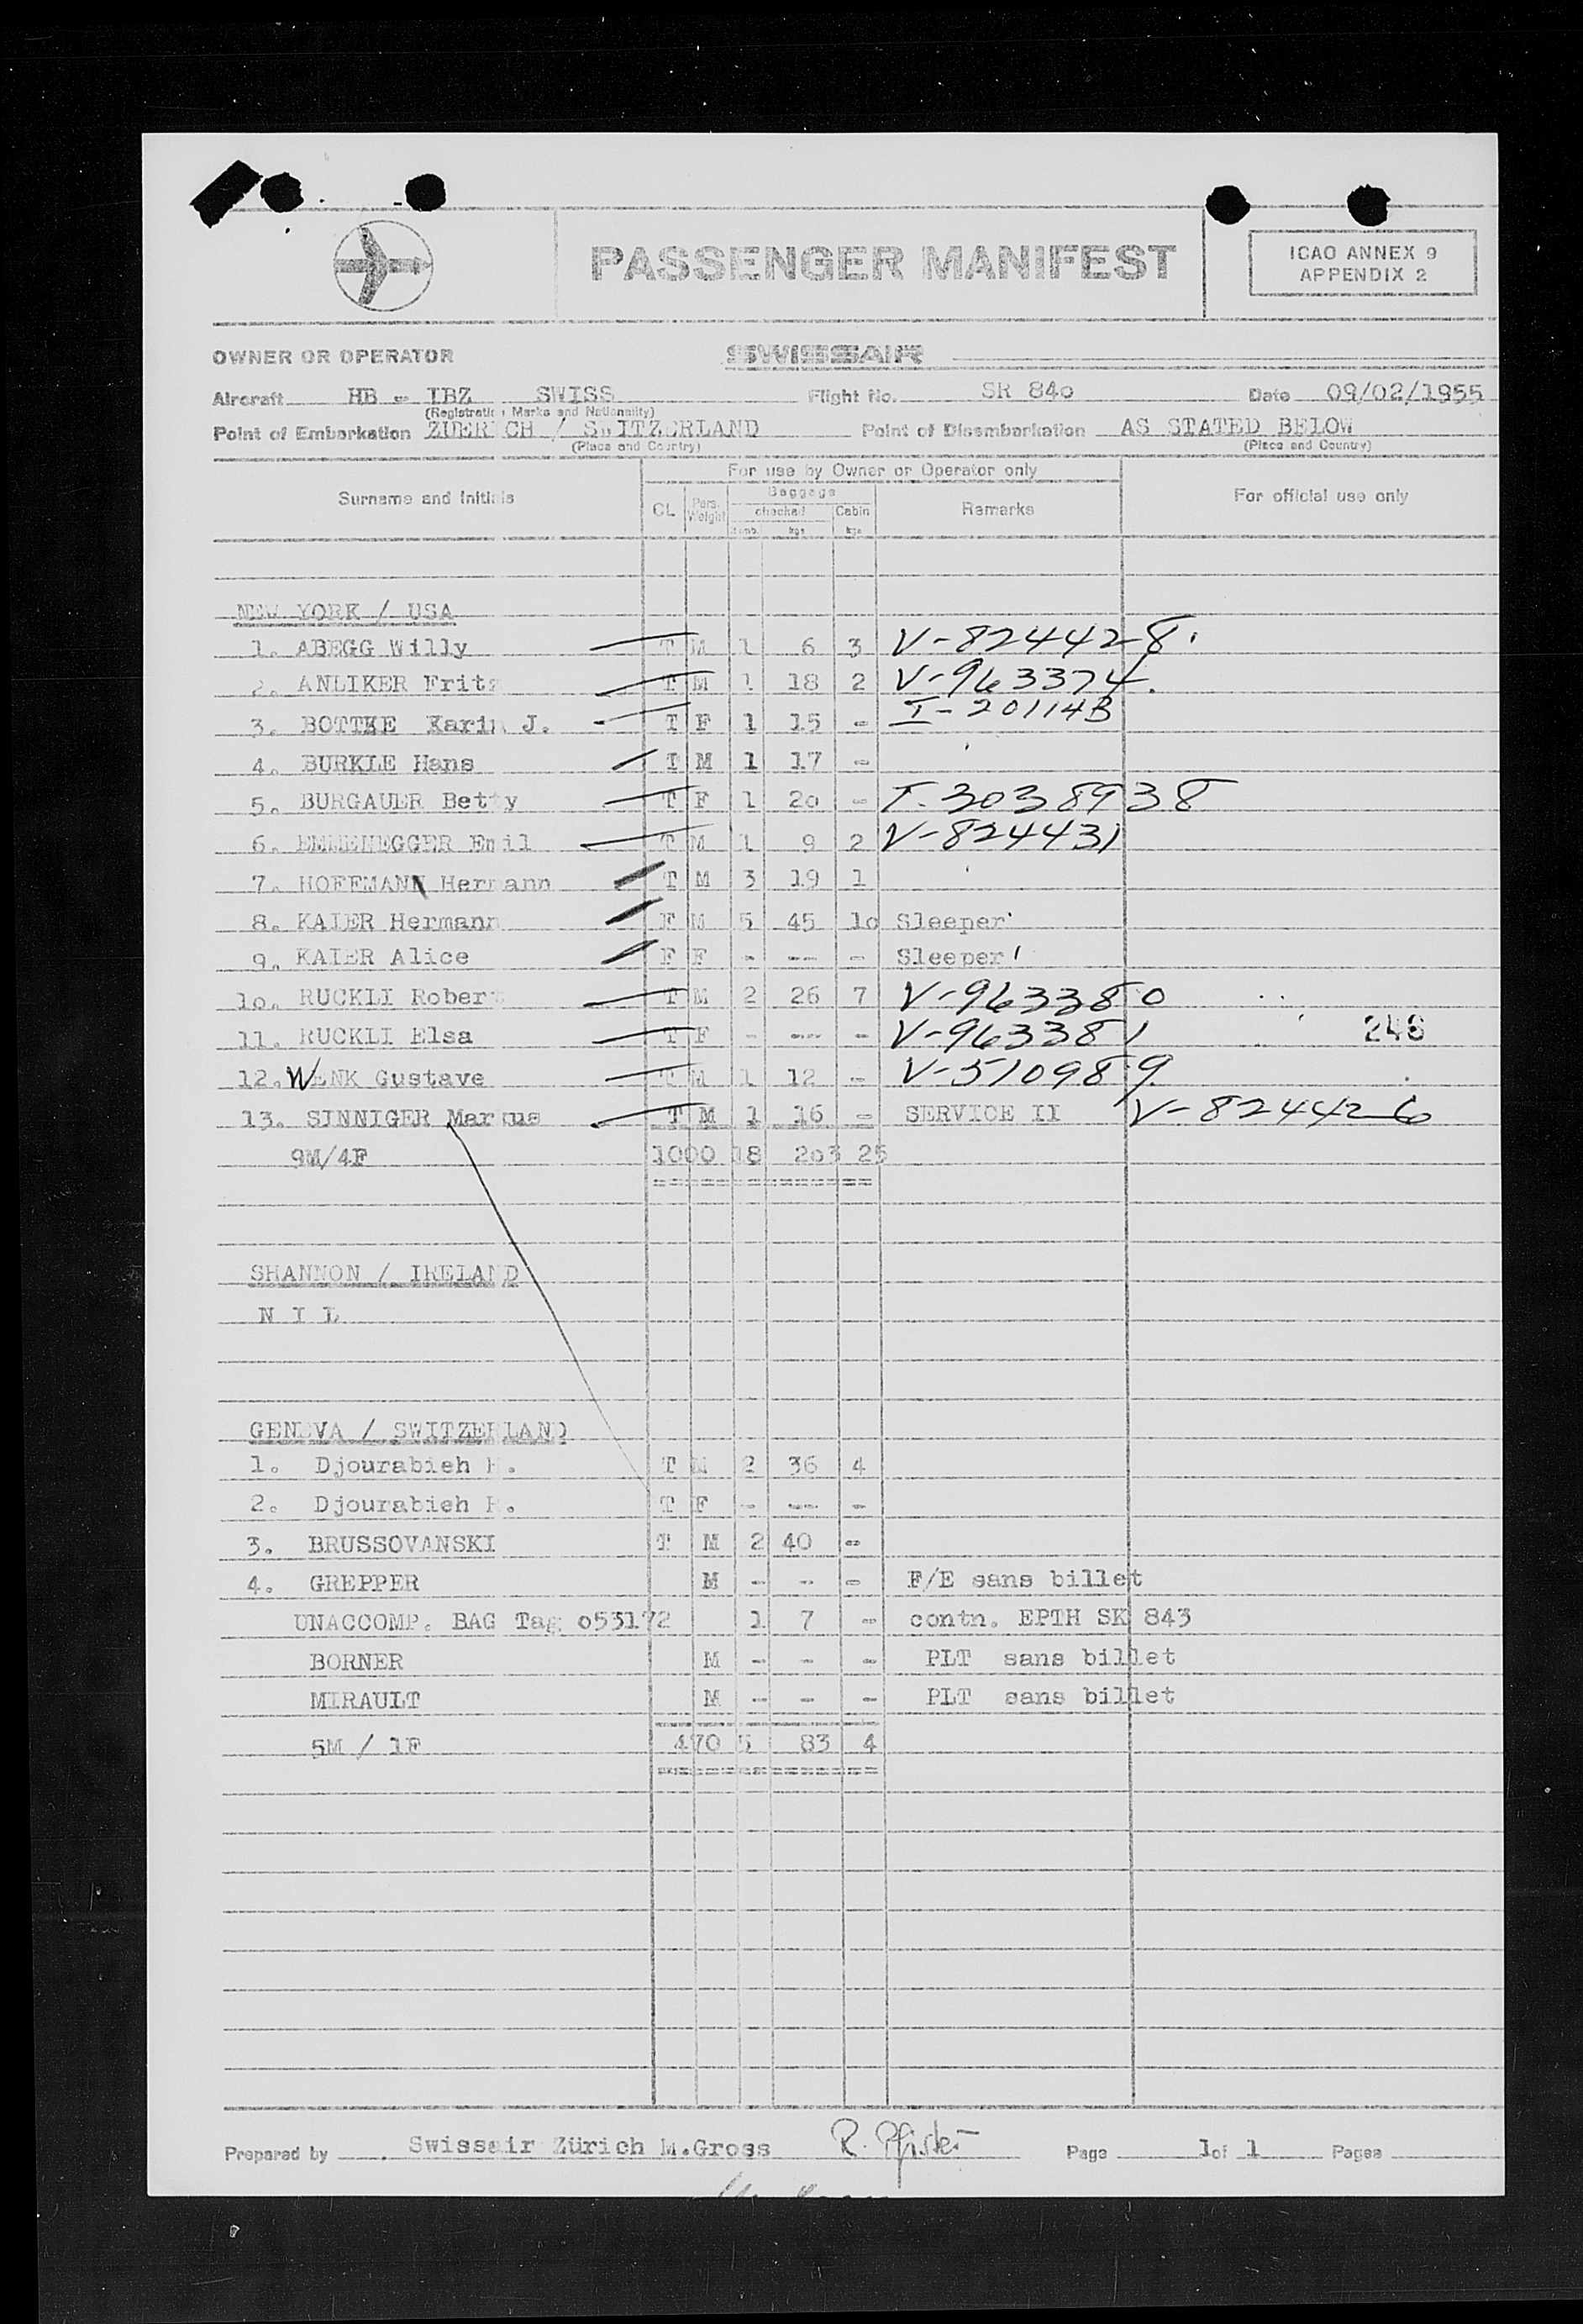 PASSENGER MANIFEST
ICAO ANNEX 9
APPENDIX 2
OWNER OR OPERATOR SWISSAIR
Aircraft HB - IBZ SWISS Flight No. SR 84o Date 09/02/1955
(Registration Marks and Nationality)
Point of Embarkation ZUERICH / SWITZERLAND Point of Disembarkation AS STATED BELOW
(Place and Country) (Place and Country)
For use by Owner or Operator only
Surname and Initials CL Pers. Weight Baggage checked kgs Cabin kgs Remarks For official use only
NEW YORK / USA
1. ABEGG Willy T M 1 6 3 V-824428
2. ANLIKER Fritz T M 1 18 2 V-963374
3. BOTTKE Karin J. T F 1 15 - I-20114B
4. BURKLE Hans T M 1 17 -
5. BURGAUER Betty T F 1 2o - I-3038938
6. EMMENEGGER Emil T M 1 9 2 V-824431
7. HOFFMANN Hermann T M 3 19 1
8. KAIER Hermann F M 5 45 1o Sleeper
9. KAIER Alice F F - --- - Sleeper
1o. RUCKLI Robert T M 2 26 7 V-963380
11. RUCKLI Elsa T F - --- - V-963381 248
12. WENK Gustave T M 1 12 - V-510989
13. SINNIGER Markus T M 1 16 - SERVICE II V-824426
9M/4F 1000 18 2o3 25
SHANNON / IRELAND
N I L
GENEVA / SWITZERLAND
1. Djourabieh H. T M 2 36 4
2. Djourabieh T F - --- -
3. BRUSSOVANSKI T M 2 40 -
4. GREPPER M - - - F/E sans billet
UNACCOMP. BAG Tag o53172 1 7 - contn. EPTH SK 843
BORNER M - - - PLT sans billet
MIRAULT M - - - PLT sans billet
5M / 1F 470 5 83 4
Prepared by Swissair Zürich M.Gross R. Pfister Page 1 of 1 Pages